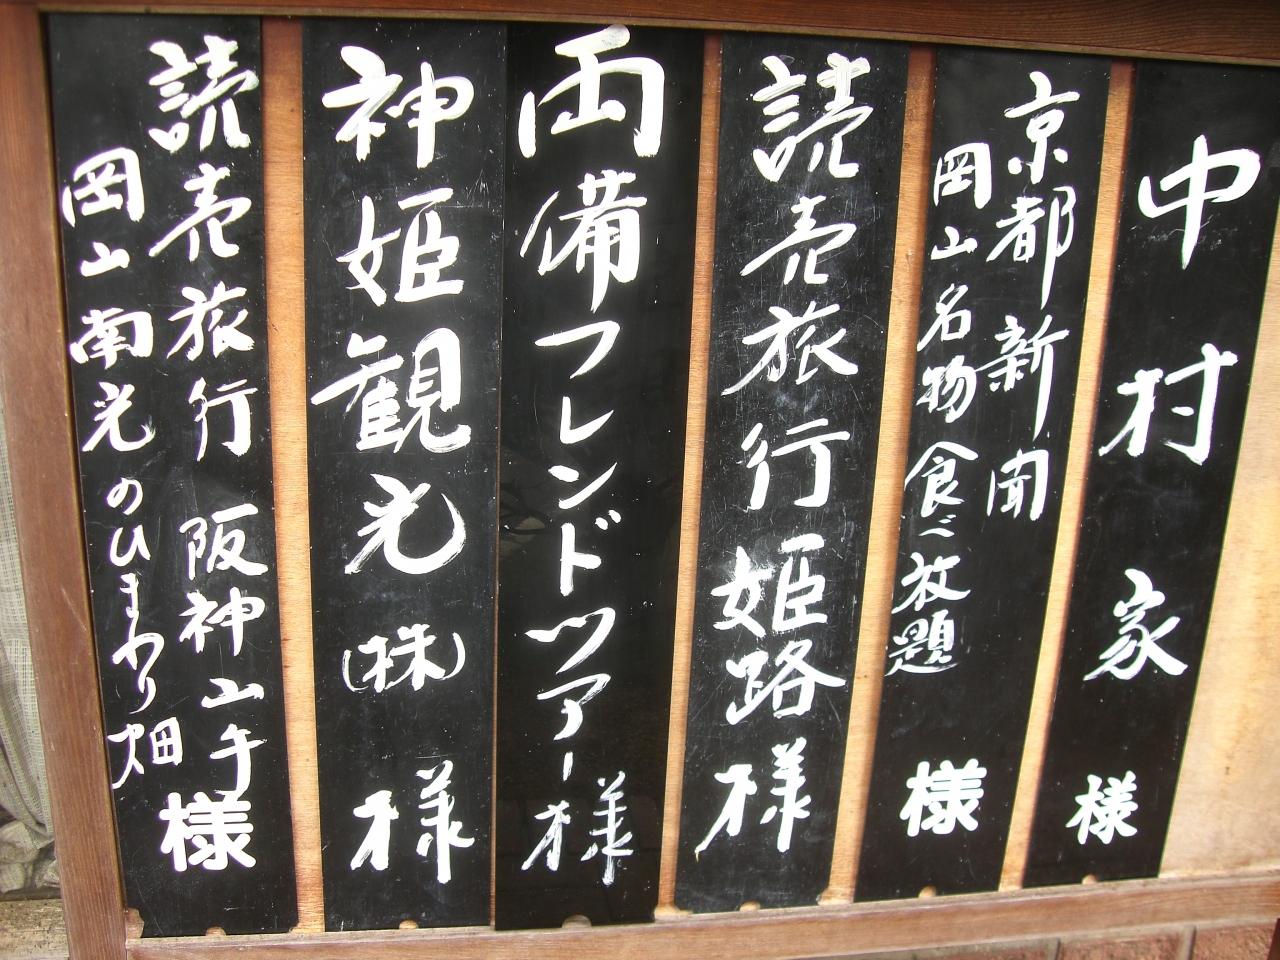 中村家 様
京都新聞
岡山名物食べ放題 様
読売旅行姫路 様
両備フレンドツアー 様
神姫観光(株) 様
読売旅行 阪神山手
岡山南光のひまわり畑 様